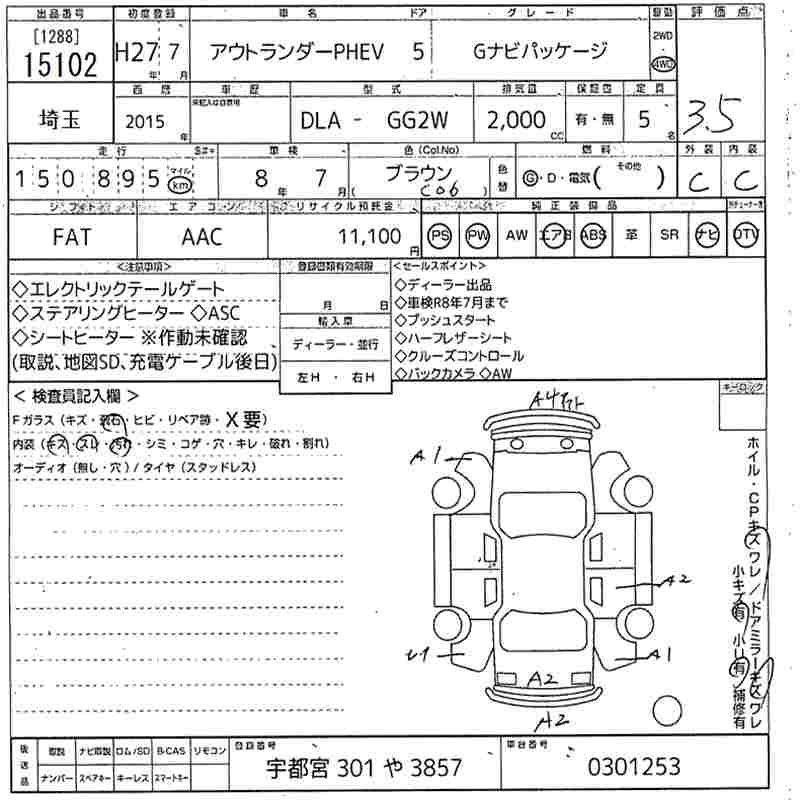 出品番号 初度登録 車名 ドア グレード 駆動 評価点
[1288]
15102
H27 年 7 月
アウトランダーPHEV 5 Gナビパッケージ
2WD
・
4WD
3.5
埼玉
西暦 車歴 型式 排気量 保証書 定員
未記入は自家用
2015 年
DLA - GG2W
2,000 CC
有・無
5 名
走行 車検 色 (Col.No) 燃料 外装 内装
150895 マイル km
8 年 7 月
ブラウン
( C06 )
色替
G・D・電気 ( その他 )
C C
シフト エアコン リサイクル預託金 純正装備品
FAT AAC 11,100 円
PS PW AW エアB ABS 革 SR ナビ DTV
<注意事項> 登録書類有効期限 <セールスポイント>
◇エレクトリックテールゲート
◇ステアリングヒーター ◇ASC
◇シートヒーター ※作動未確認
(取説、地図SD、充電ケーブル後日)
月 日
輸入車
ディーラー・並行
左H ・ 右H
◇ディーラー出品
◇車検R8年7月まで
◇プッシュスタート
◇ハーフレザーシート
◇クルーズコントロール
◇バックカメラ ◇AW
< 検査員記入欄 >
キーロック
Fガラス (キズ・飛石・ヒビ・リペア跡・X要)
内装 (キズ・スレ・汚れ・シミ・コゲ・穴・キレ・破れ・割れ)
オーディオ (無し・穴) / タイヤ (スタッドレス)
A1
A2
A1
A2
A2
ホイル・CPキズワレ/ドアミラーキズワレ
小キズ有 小U有 補修有
後送品
取説 ナビ取説 ロム/SD B-CAS リモコン
ナンバー スペアキー キーレス スマートキー
登録番号
宇都宮 301 や 3857
車台番号
0301253